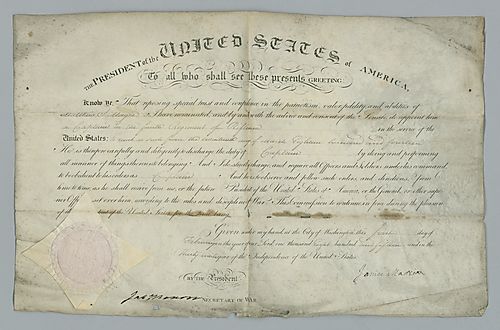 THE PRESIDENT of the UNITED STATES of AMERICA,
To all who shall see these presents GREETING:
Know Ye, That reposing special trust and confidence in the patriotism, valor, fidelity, and abilities of
I have nominated, and with the advice and consent of the Senate, do appoint him
Captain in the Regiment of Riflemen in the service of the
United States: eighteen hundred and fourteen
He is therefore carefully and diligently to discharge the duty of Captain by doing and performing
all manner of things thereunto belonging. And I do strictly charge, and require all Officers and Soldiers under his command
to be obedient to his orders as Captain And he is to observe and follow such orders, and directions, from
time to time, as he shall receive from me, or the future President of the United States of America, or the General, or other supe-
rior Officers set over him, according to the rules and discipline of War. This commission to continue in force during the pleasure
of the President of the United States for the time being.
Given under my hand, at the City of Washington, this day of
February in the year of our Lord, one thousand eight hundred and fifteen and in the
thirty ninth year of the Independence of the United States.
By the President
James Madison
Jas Monroe SECRETARY OF WAR.